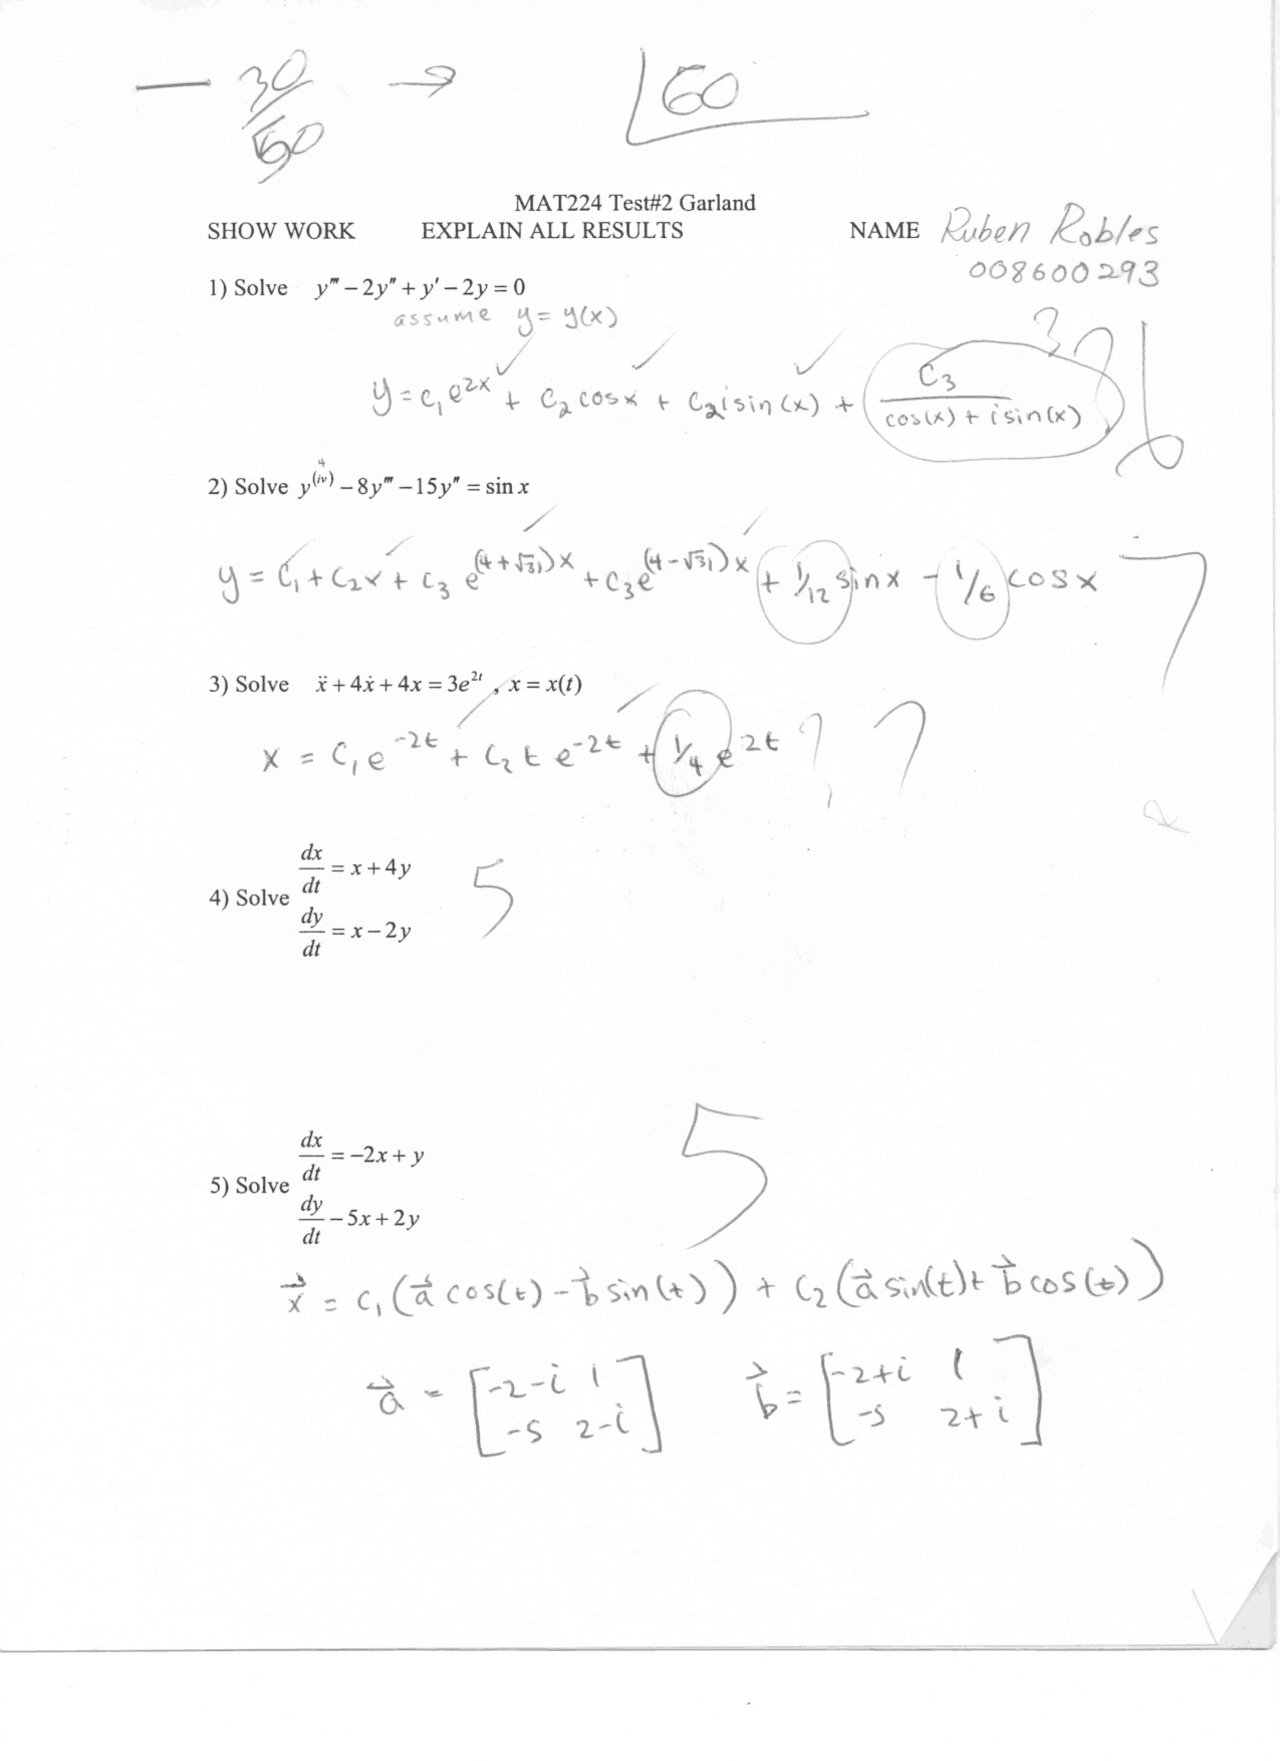 — 30/50 → 60
MAT224 Test#2 Garland
SHOW WORK EXPLAIN ALL RESULTS NAME Ruben Robles
008600293
1) Solve y‴ − 2y″ + y′ − 2y = 0
assume y = y(x)
y = c₁e^2x + c₂ cosx + c₂ i sin(x) + c₃/(cos(x) + i sin(x)) ? 6
2) Solve y^(iv) − 8y‴ − 15y″ = sin x
4
y = c₁ + c₂x + c₃ e^(4+√31)x + c₃e^(4−√31)x + 1/12 sinx − 1/6 cosx 7
3) Solve ẍ + 4ẋ + 4x = 3e^2t , x = x(t)
x = c₁e^−2t + c₂ t e^−2t + 1/4 e^2t ? 7
4) Solve dx/dt = x + 4y 5
dy/dt = x − 2y
5) Solve dx/dt = −2x + y 5
dy/dt − 5x + 2y
x⃗ = c₁(a⃗ cos(t) − b⃗ sin(t)) + c₂(a⃗ sin(t) + b⃗ cos(t))
a⃗ = [−2−i 1 b⃗ = [−2+i 1
−5 2−i] −5 2+i]